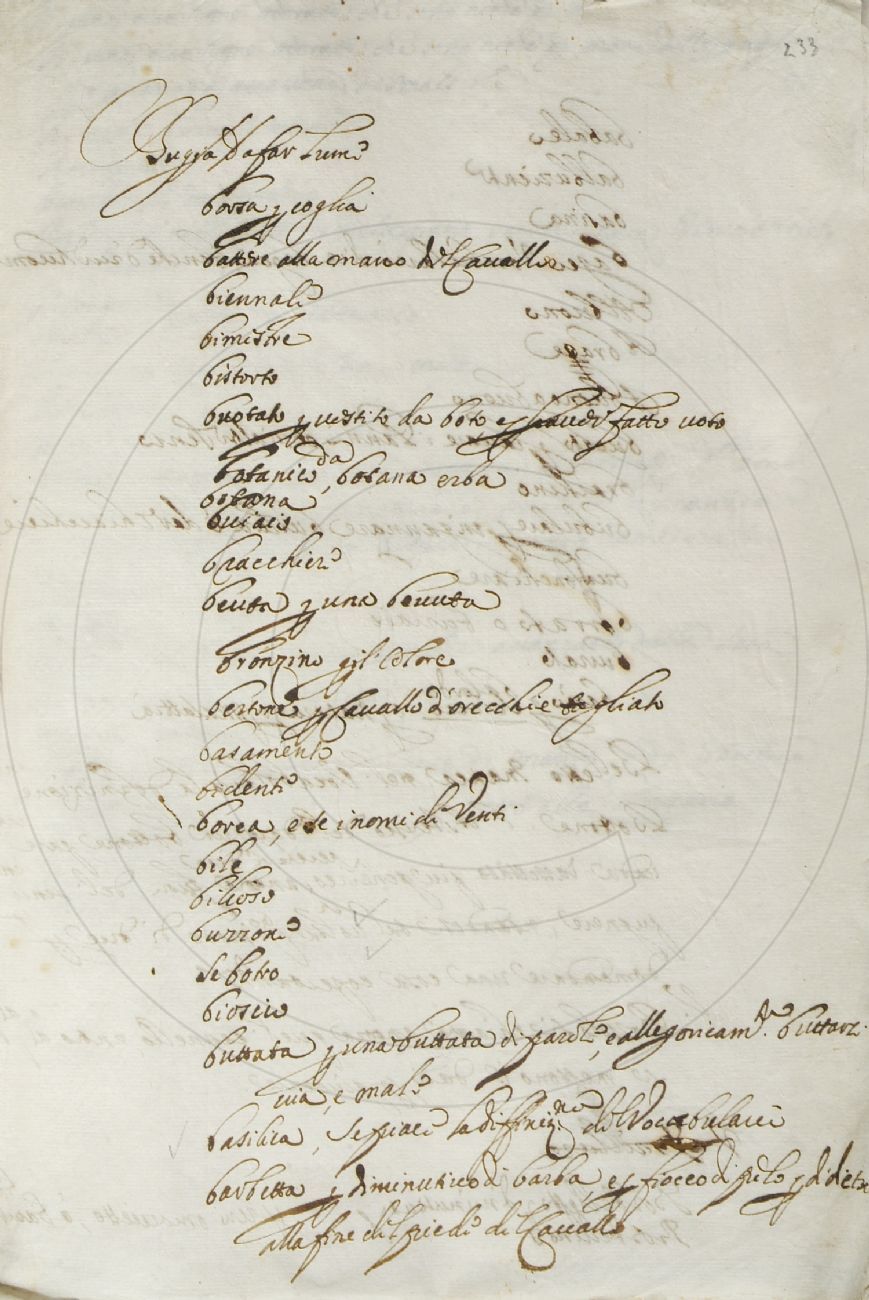 233
Bugia da far lume
borsa p coglia
battere alla mano del Cavallo
biennale
bimestre
bistorto
botato p vestito da boto e p haver fatto voto
botanico, da botana erba
botana
buiaio
bracchiere
beuta p una bevuta
bronzino p il colore
bertone p Cavallo d'orecchie tagliato
basamento
bidente
borea, e se i nomi di Venti
bile
bilioso
buzzone
se botro
bioscio
buttata p una buttata di parole, e allegoricam.te buttarz
via, e male
basilica, se piace la diffiniz.ne del Vocabulario
barbetta p diminutivo di barba, e p fiocco di pelo p di dietro
alla fine del piede del Cavallo